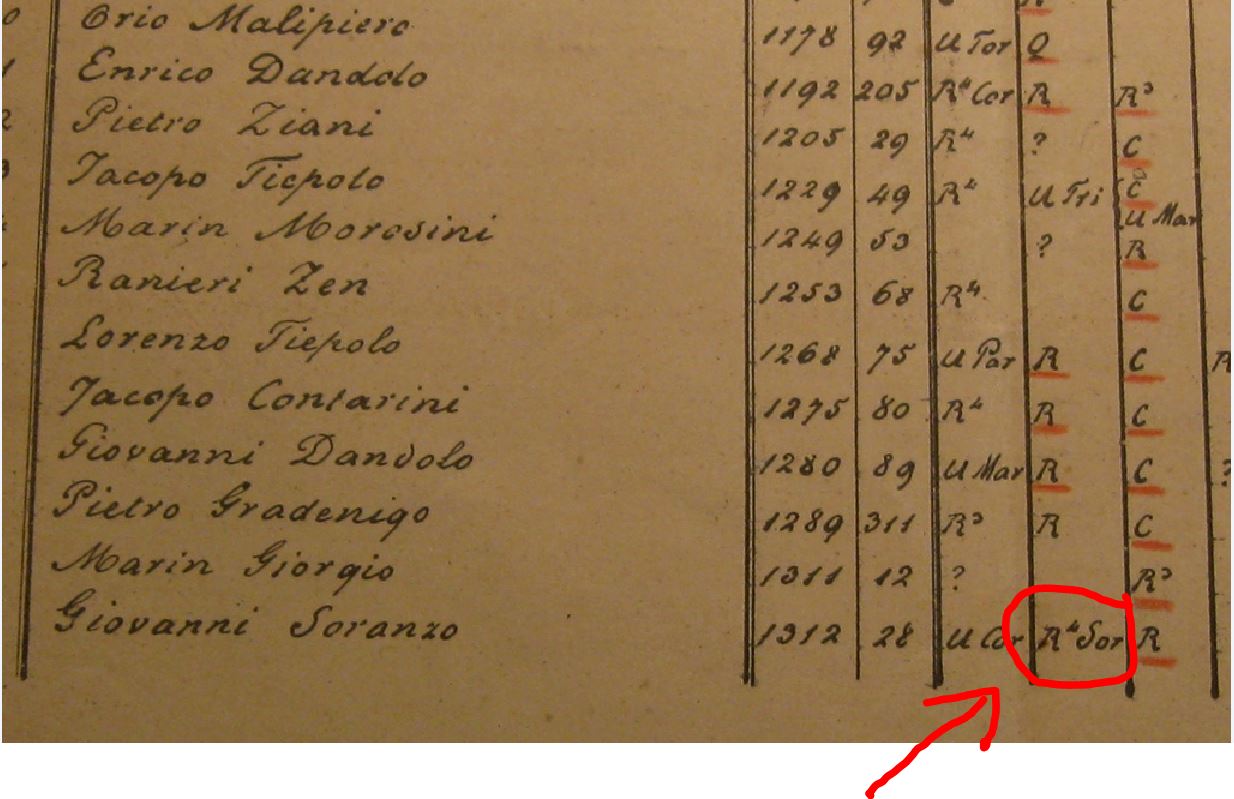 Orio Malipiero 1178 92 U Tor Q
Enrico Dandolo 1192 205 R⁴ Cor R R³
Pietro Ziani 1205 29 R⁴ ? C
Jacopo Tiepolo 1229 49 R⁴ U Tri C
U Mar
Marin Morosini 1249 53 ? R
Ranieri Zen 1253 68 R⁴ C
Lorenzo Tiepolo 1268 75 U Par R C R
Jacopo Contarini 1275 80 R⁴ R C
Giovanni Dandolo 1280 89 U Mar R C ?
Pietro Gradenigo 1289 311 R³ R C
Marin Giorgio 1311 12 ? R³
Giovanni Soranzo 1312 28 U Cor R⁴ Sor R